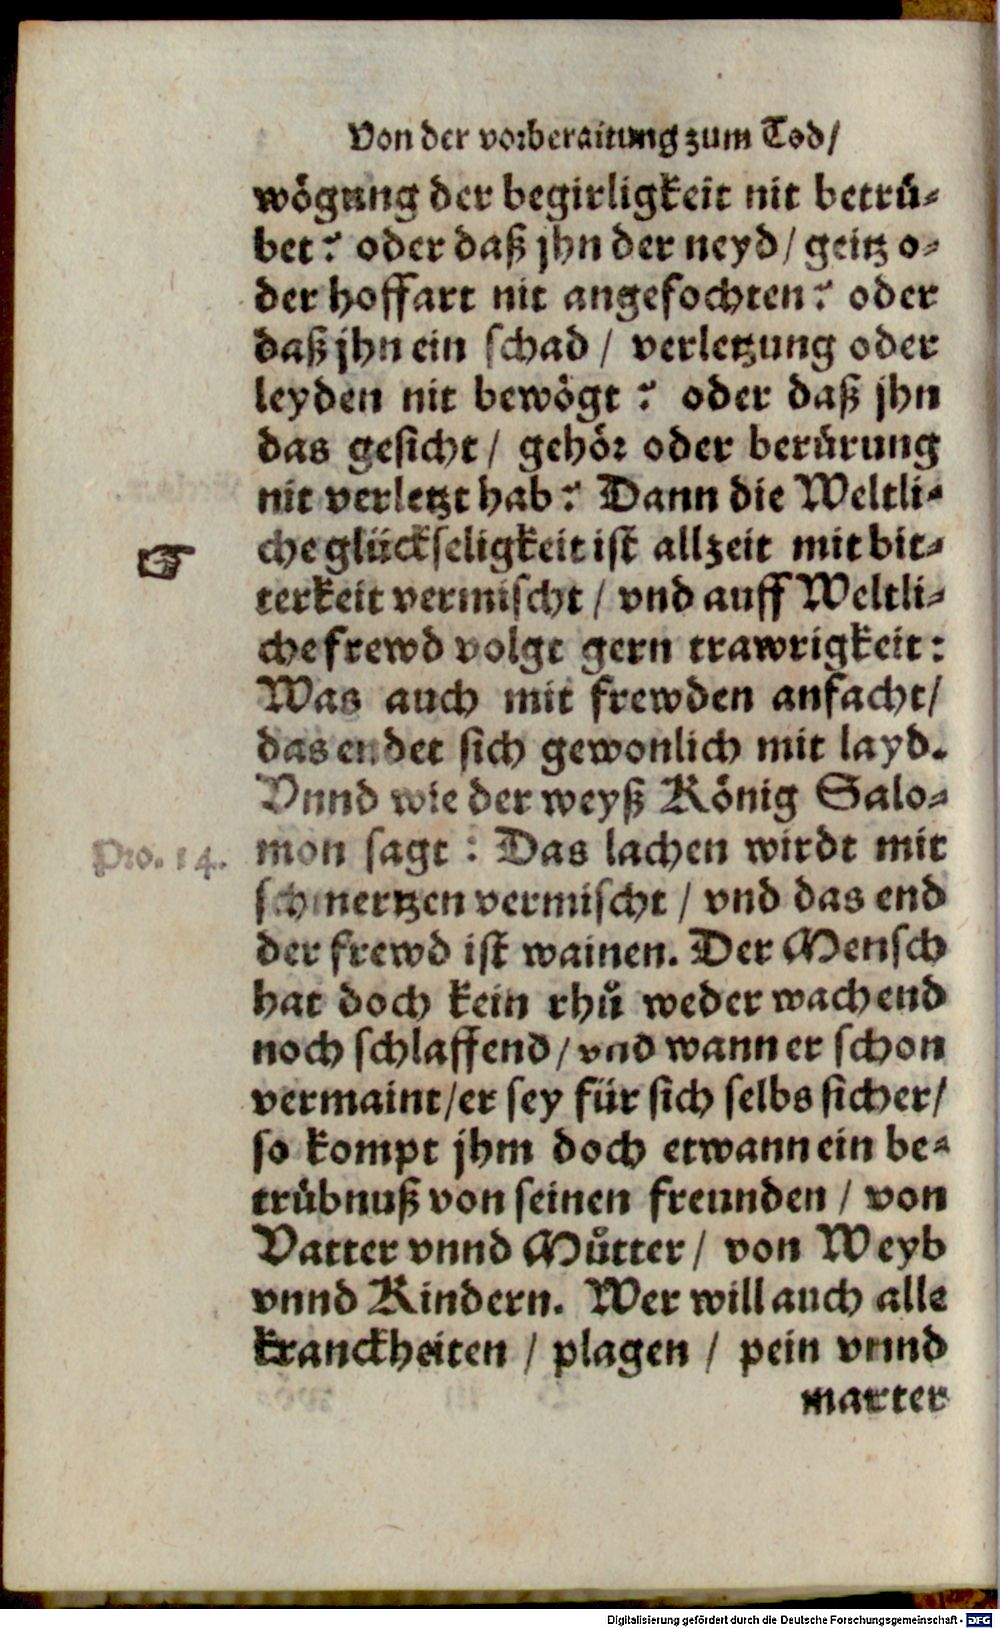 Von der vorberaitung zum Tod/
wögung der begirligkeit nit betrü-
bet? oder daß jhn der neyd/ geitz o-
der hoffart nit angefochten? oder
daß jhn ein schad / verletzung oder
leyden nit bewögt ? oder daß jhn
das gesicht/ gehör oder berürung
nit verletzt hab? Dann die Weltli-
☞ che glückseligkeit ist allzeit mit bit-
terkeit vermischt / vnd auff Weltli-
che frewd volgt gern trawrigkeit:
Was auch mit frewden anfacht/
das endet sich gewonlich mit layd.
Vnnd wie der weyß König Salo-
Pro. 14. mon sagt : Das lachen wirdt mit
schmertzen vermischt / vnd das end
der frewd ist wainen. Der Mensch
hat doch kein rhů weder wachend
noch schlaffend/ vnd wann er schon
vermaint/er sey für sich selbs sicher/
so kompt jhm doch etwann ein be-
trübnuß von seinen freunden / von
Vatter vnnd Můtter/ von Weyb
vnnd Kindern. Wer will auch alle
kranckheiten / plagen / pein vnnd
marter
Digitalisierung gefördert durch die Deutsche Forschungsgemeinschaft - DFG